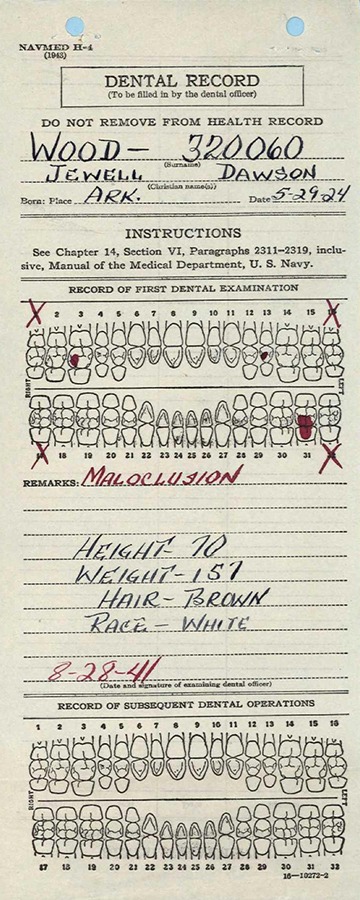 NAVMED H-4
(1943)
DENTAL RECORD
(To be filled in by the dental officer)
DO NOT REMOVE FROM HEALTH RECORD
WOOD— 320060
(Surname)
JEWELL DAWSON
(Christian name(s))
Born: Place ARK. Date 5-29-24
INSTRUCTIONS
See Chapter 14, Section VI, Paragraphs 2311–2319, inclu-
sive, Manual of the Medical Department, U. S. Navy.
RECORD OF FIRST DENTAL EXAMINATION
2 3 4 5 6 7 8 9 10 11 12 13 14 15
RIGHT LEFT
18 19 20 21 22 23 24 25 26 27 28 29 30 31
REMARKS: MALOCLUSION
HEIGHT- 70
WEIGHT-157
HAIR- BROWN
RACE- WHITE
8-28-41
(Date and signature of examining dental officer)
RECORD OF SUBSEQUENT DENTAL OPERATIONS
1 2 3 4 5 6 7 8 9 10 11 12 13 14 15 16
RIGHT LEFT
17 18 19 20 21 22 23 24 25 26 27 28 29 30 31 32
16—10272-2